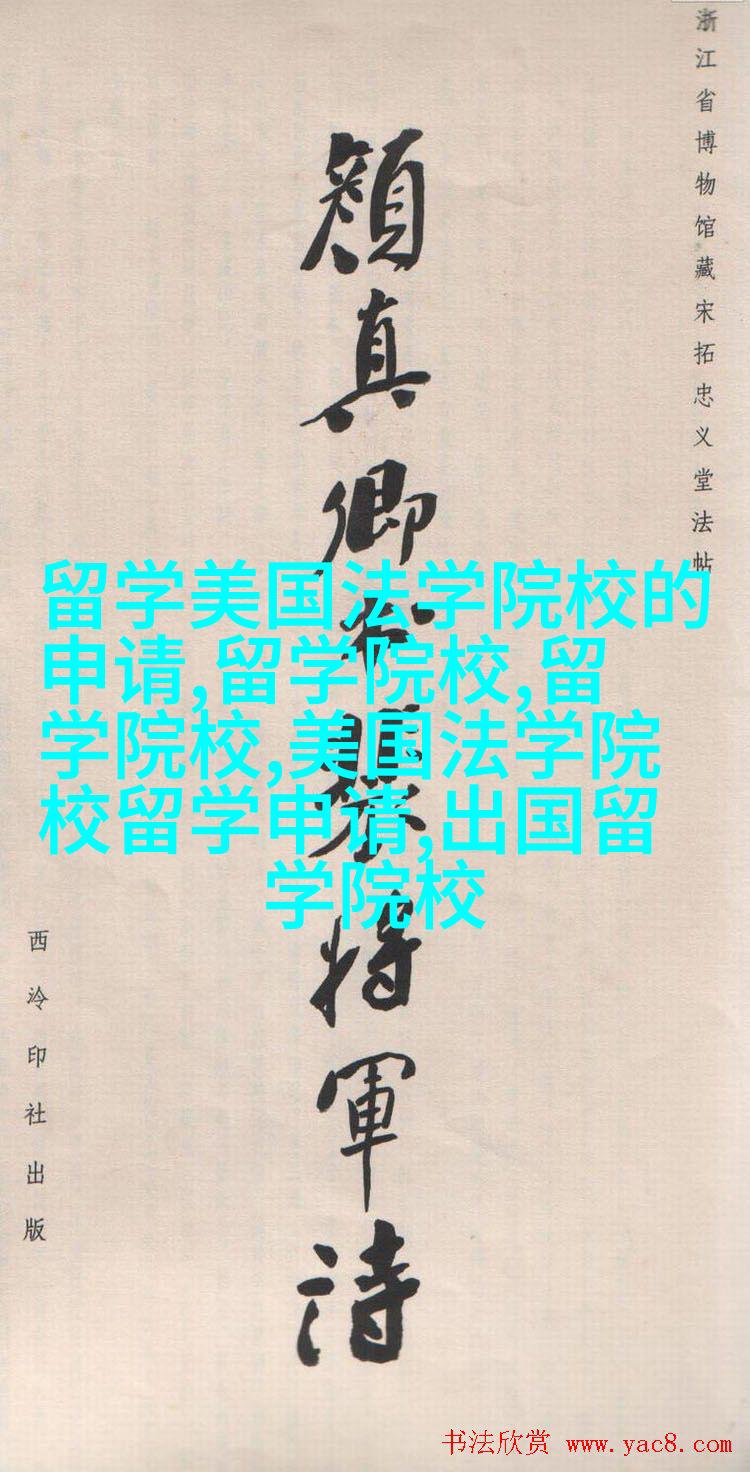 浙江省博物馆藏宋拓忠义堂法帖
顔真卿裴將軍詩
留学美国法学院校的
申请,留学院校,留
学院校,美国法学院
校留学申请,出国留
学院校
西泠印社出版
书法欣赏 www.yac8.com